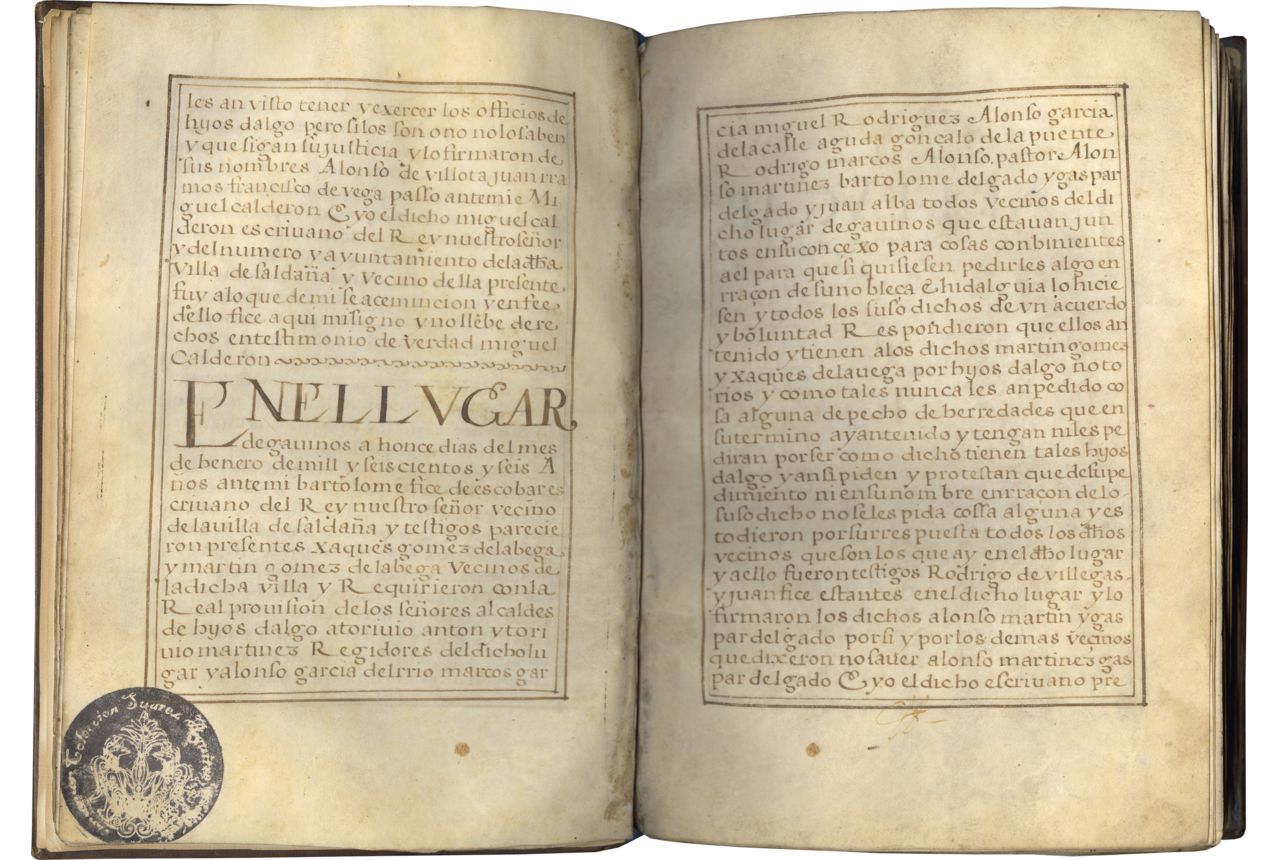 les an visto tener y exercer los officios de
hijos dalgo pero si los son o no no lo saben
y que sigan su justicia y lo firmaron de
sus nombres Alonso de villota juan rra
mos francisco de vega passo ante mi Mi
guel calderon E yo el dicho miguel cal
deron escriuano del Rey nuestro señor
y del numero y ayuntamiento de la dha
villa de saldaña y vecino della presente
fuy a lo que de mi se ace mincion y en fee
dello fice a qui mi signo y no llebe de re
chos en testimonio de verdad miguel
Calderon
EN EL LVGAR
de gauinos a honce dias del mes
de henero de mill y seis cientos y seis A
ños ante mi bartolome fice de escobar es
criuano del Rey nuestro señor vecino
de la villa de saldaña y testigos parecie
ron presentes xaques gomez de la bega
y martin gomez de la bega vecinos de
la dicha villa y Requirieron con la
Real prouision de los señores alcaldes
de hijos dalgo a toriuio anton y tori
uio martinez Regidores del dicho lu
gar y alonso garcia del rrio marcos gar
cia miguel Rodriguez Alonso garcia
de la calle aguda gonçalo de la puente
Rodrigo marcos Alonso pastor Alon
so martinez bartolome delgado y gas par
delgado y juan alba todos vecinos del di
cho lugar de gauinos que estauan jun
tos en su concexo para cosas conbinientes
a el para que si quisiesen pedirles algo en
rraçon de su nobleca E hidalguia lo hicie
sen y todos los suso dichos de vn acuerdo
y bõluntad Respondieron que ellos an
tenido y tienen a los dichos martin gomez
y xaques de la uega por hijos dalgo noto
rios y como tales nunca les an pedido co
sa alguna de pecho de herredades que en
su termino ayan tenido y tengan ni les pe
diran por ser como dicho tienen tales hijos
dalgo y ansi piden y protestan que de su pe
dimiento ni en su nombre en rraçon de lo
suso dicho no se les pida cossa alguna y es
to dieron por su rrespuesta todos los dhos
vecinos que son los que ay en el dho lugar
y a ello fueron testigos Rodrigo de villegas
y juan fice estantes en el dicho lugar y lo
firmaron los dichos alonso martin y gas
par delgado por si y por los demas vecinos
que dixeron no sauer alonso martinez gas
par delgado E yo el dicho escriuano pre